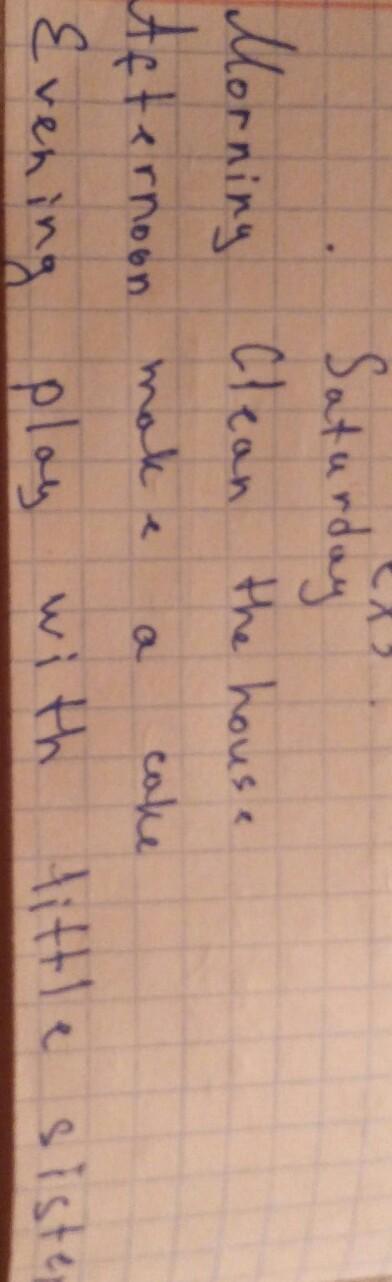 Saturday
Morning Clean the house
Afternoon make a cake
Evening play with little sister